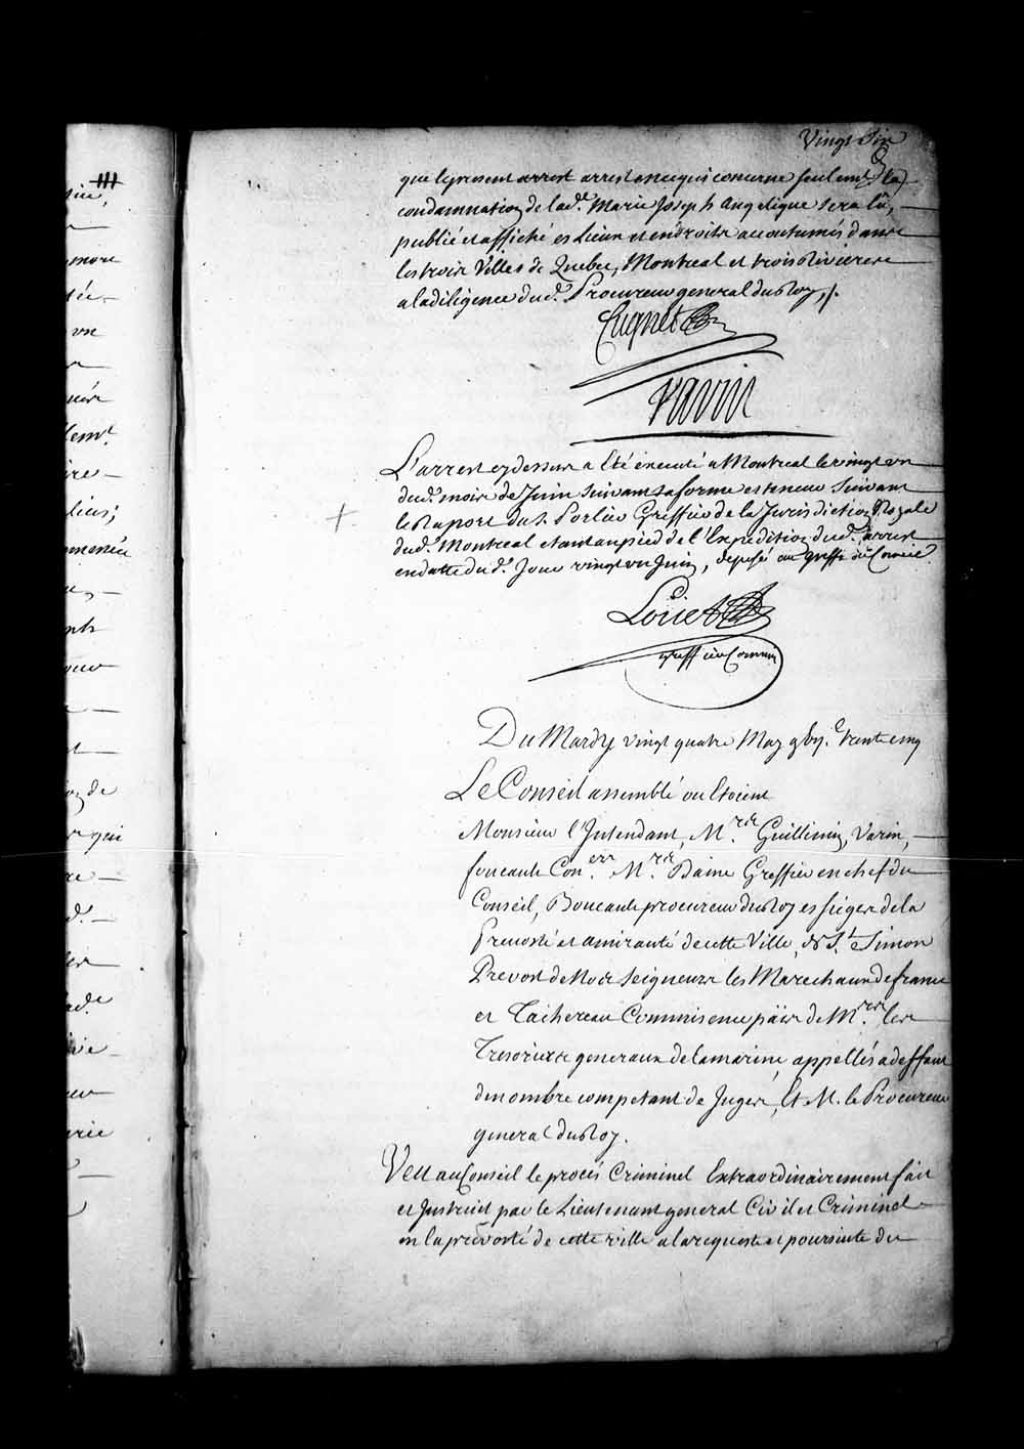 Vingt Six
que le present arrest arrest en ce qui concerne seulemt la
condamnation de lad.e Marie Joseph Angelique sera lû,
publié et affiché es Lieux et endroits accoutumés dans
les trois Villes de Quebec, Montreal et trois Rivieres
a la diligence dud. Procureur general du Roy, /.
Cugnet
Varin
L'arrest cy dessus a Eté éxecuté a Montreal le vingt un
dud. mois de Juin suivant sa forme et teneur suivant
le Raport du S. Porlier Greffier de la Jurisdiction Royale
dud. Montreal etant au pied de l'Expedition dud. arrest
en datte dud. Jour vingt un Juin, deposé au greffe du Conseil
Loüet
greff
Du Mardy vingt quatre May trente cinq
Le Conseil assemblé ou Etoient
Monsieur l'Intendant, M.rs Guillimin, Varin,
foucault Con.ers M.rs Daine Greffier en chef du
Conseil, Boucault procureur du Roy es sieges de la
Prevosté et amirauté de cette Ville, de S.t Simon
Prevost de Nos Seigneurs les Marechaux de france
et Tachereau Commis en ce païs de M.rs les
Tresoriers generaux de la marine, appellés a deffaut
de nombre competant de Juges, Et M. le Procureur
general du Roy.
Veu au Conseil le procés Criminel Extraordinairement fait
et Instruit par le Lieutenant general Civil et Criminel
en la prévosté de cette ville a la requeste et poursuite du
III
more
vre
de
qui